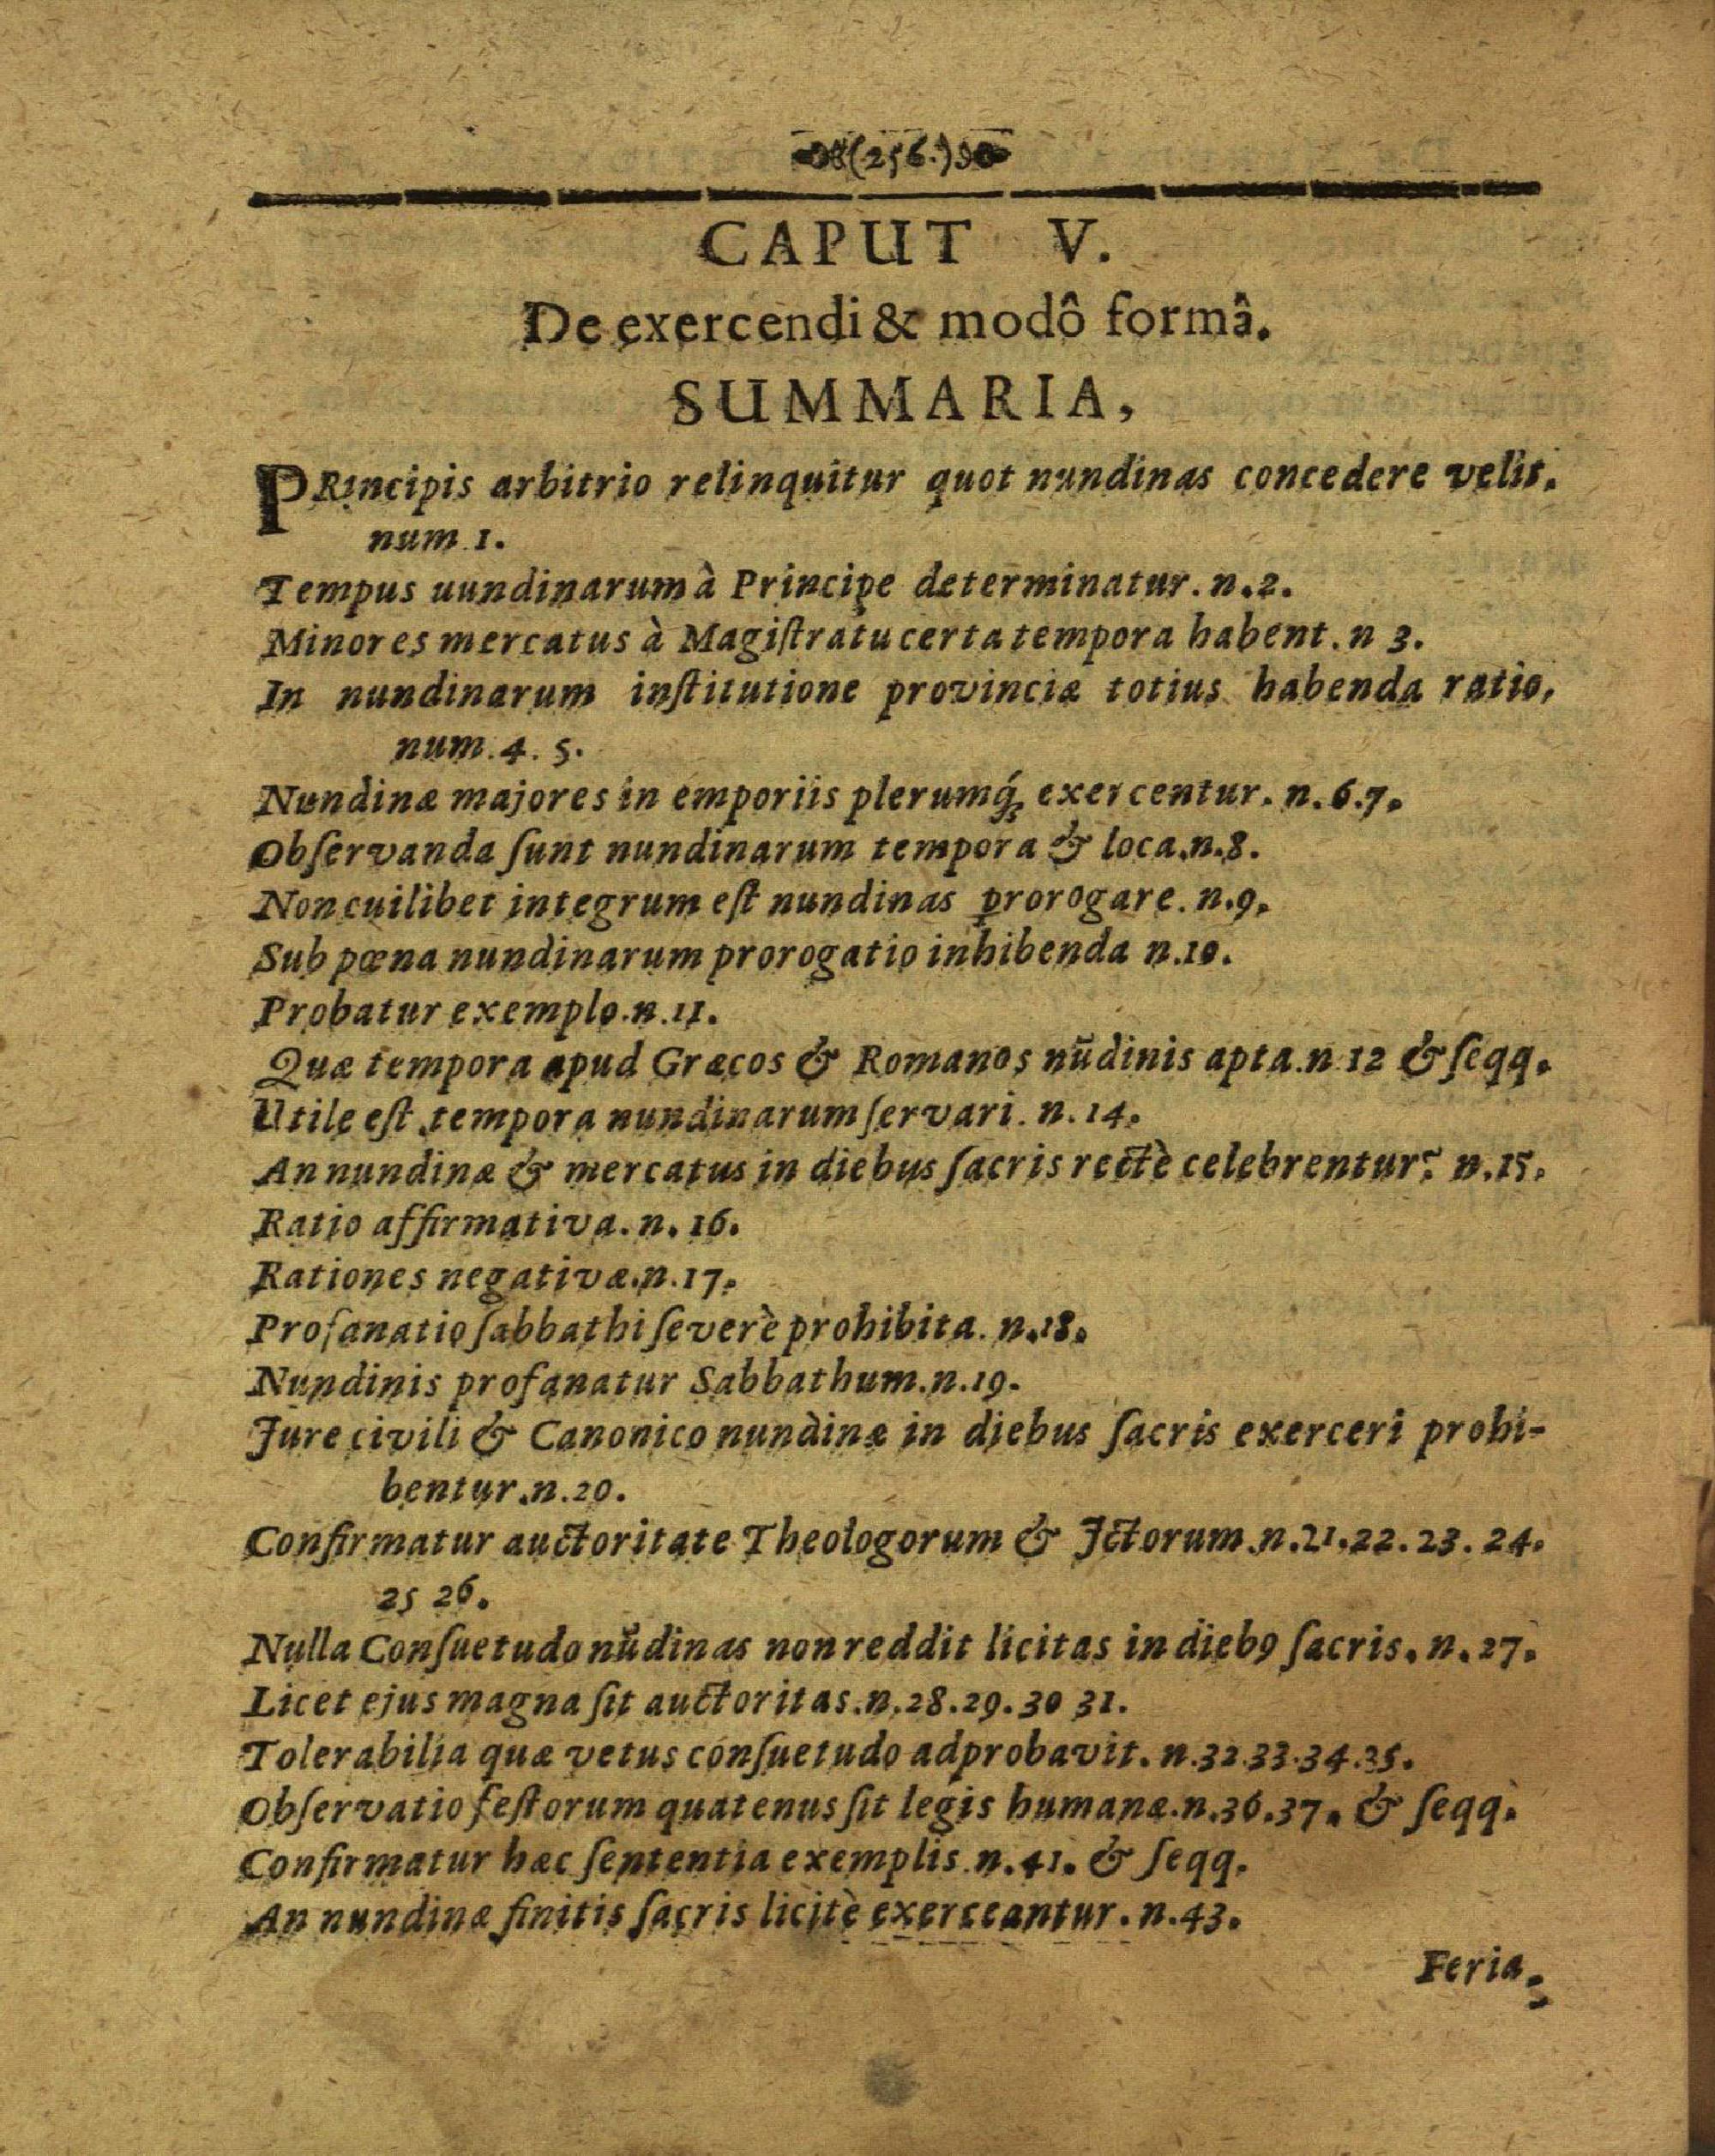 (256.)
CAPUT V.
De exercendi & modô formâ.
SUMMARIA,
PRincipis arbitrio relinquitur quot nundinas concedere velit.
num 1.
Tempus uundinarum à Principe determinatur. n.2.
Minores mercatus à Magiſtratu certa tempora habent. n 3.
In nundinarum inſtitutione provinciæ totius habenda ratio,
num. 4. 5.
Nundinæ majores in emporiis plerumq́; exercentur. n. 6.7.
Obſervanda ſunt nundinarum tempora & loca.n.8.
Non cuilibet integrum eſt nundinas prorogare. n.9.
Sub pœna nundinarum prorogatio inhibenda n.10.
Probatur exemplo.n.11.
Quæ tempora apud Græcos & Romanos nũdinis apta.n 12 & ſeqq.
Utile eſt tempora nundinarum ſervari. n. 14.
An nundinæ & mercatus in diebus ſacris rectè celebrentur? n.15.
Ratio affirmativa. n. 16.
Rationes negativæ.n.17.
Profanatio ſabbathi ſeverè prohibita. n.18.
Nundinis profanatur Sabbathum.n.19.
Jure civili & Canonico nundinæ in diebus ſacris exerceri prohi-
bentur.n.20.
Confirmatur auctoritate Theologorum & Jctorum.n.21.22. 23. 24.
25 26.
Nulla Conſuetudo nũdinas non reddit licitas in dieb9 ſacris. n. 27.
Licet ejus magna ſit auctoritas.n.28.29. 30 31.
Tolerabilia quæ vetus conſuetudo adprobavit. n.32.33.34.35.
Obſervatio feſtorum quatenus ſit legis humanæ.n.36.37. & ſeqq.
Confirmatur hæc ſententia exemplis.n.41. & ſeqq.
An nundinæ finitis ſacris licitè exerceantur. n.43.
Feria,